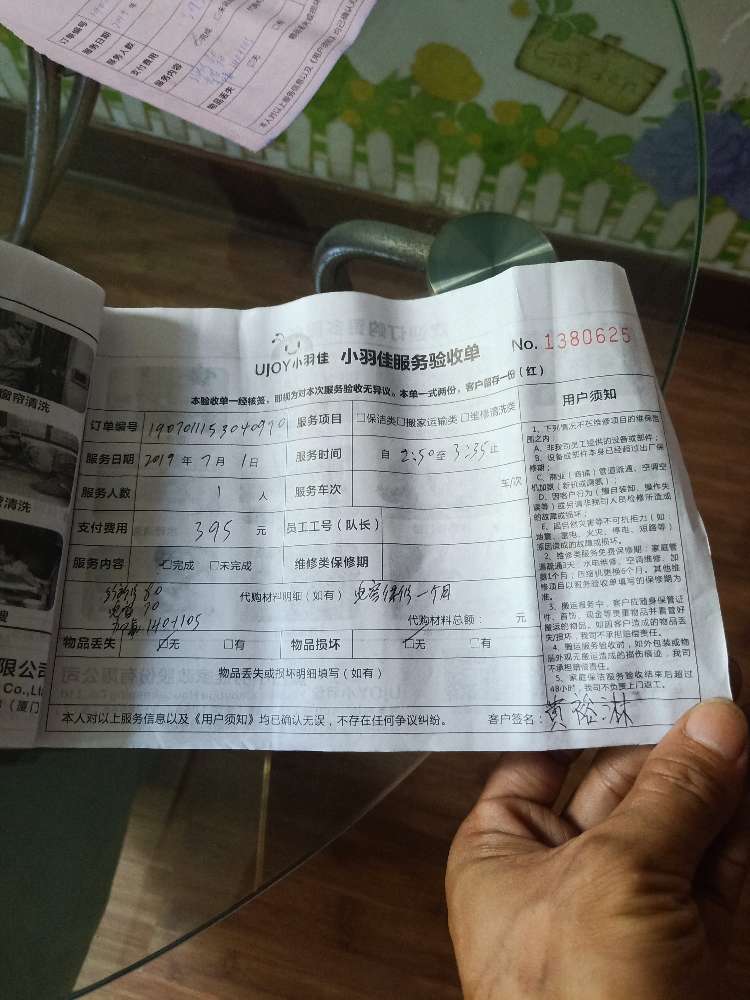 订单编号
服务日期
服务人数
支付费用
服务内容
完成
□无
物品丢失
本人对以上服务信息以及《用户须知》均已确认无
窗帘清洗
清洗
限公司
Co.,Ltd
(厦门
UJOY小羽佳 小羽佳服务验收单 No. 1380625
本验收单一经核签,即视为对本次服务验收无异议。本单一式两份,客户留存一份(红)
订单编号 190701153040970 服务项目 □保洁类□搬家运输类□维修清洗类
服务日期 2019 年 7 月 1 日 服务时间 自 2:50 至 3:35 止
服务人数 1 人 服务车次 车/次
支付费用 395 元 员工工号(队长)
服务内容 ☑完成 □未完成 维修类保修期
代购材料明细(如有) 电容保修一个月
代购材料总额: 元
物品丢失 ☑无 □有 物品损坏 ☑无 □有
物品丢失或损坏明细填写(如有)
本人对以上服务信息以及《用户须知》均已确认无误,不存在任何争议纠纷。 客户签名:黄裕淋
用户须知
1、下列情况不在维修项目的维保范
围之内
A、非我司员工提供的设备或部件;
B、设备或部件本身已经超过出厂保
修期;
C、商业(商铺)管道疏通、空调空
机加氟(新机或漏氟);
D、因客户行为(擅自装卸、操作失
误)或另请非我司人员检修所造成
的故障或损坏;
E、因自然灾害等不可抗拒力(如
地震、雷电、火灾、停电、短路等)
原因造成的故障或损坏。
2、维修类服务免费保修期:家庭管
道疏通3天、水电维修、空调维修、加
氟1个月;压缩机更换6个月。其他维
修项目以服务验收单填写的保修期为
准。
3、搬运服务中,客户应随身保管证
件、首饰、现金等贵重物品并看管好
搬运的物品。如因客户造成的物品丢
失/损坏,我司不承担赔偿责任。
4、搬运服务验收时,如外包装或物
品外观无搬运造成的损伤痕迹,我司
不承担赔偿责任。
5、家庭保洁服务验收结束后超过
48小时,我司不负责上门返工。